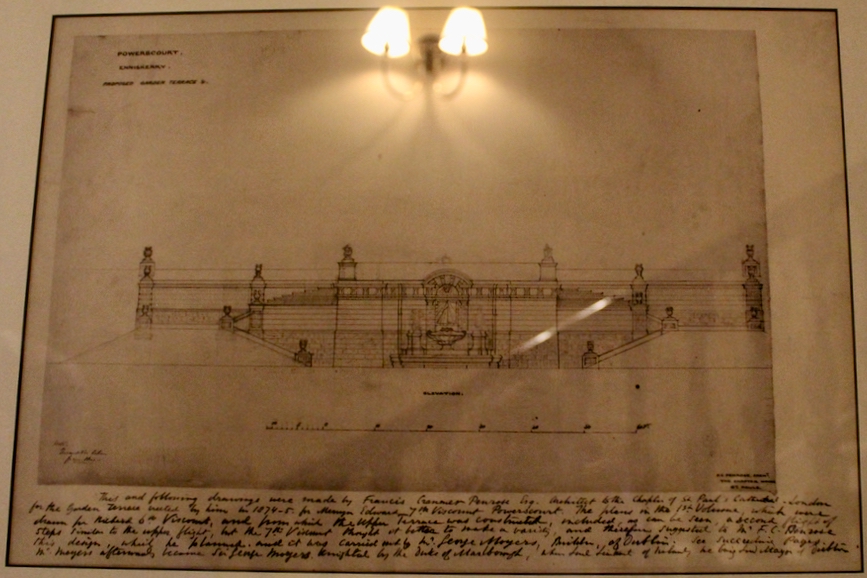 POWERSCOURT.
ENNISKERRY.
PROPOSED GARDEN TERRACE &.
ELEVATION.
This and following drawings were made by Francis Cranmer Penrose Esq. Architect to the Chapter of St Paul's Cathedral - London
for the Garden Terrace erected by him in 1874-5. for Mervyn Edward, 7th Viscount Powerscourt. The plans in the 1st Volume, which were
drawn for Richard 6th Viscount, and from which the Upper Terrace was constructed, included, as can be seen, a second flight of
steps similar to the upper flight, but the 7th Viscount thought it better to make a variety, and therefore suggested to Mr F. C. Penrose
this design, which he planned. and it was carried out by Mr George Moyers, Builder, of Dublin. See succeeding Pages.
Mr Moyers afterwards became Sir George Moyers, Knighted by the Duke of Marlborough, when Lord Lieutenant of Ireland, he being Lord Mayor of Dublin